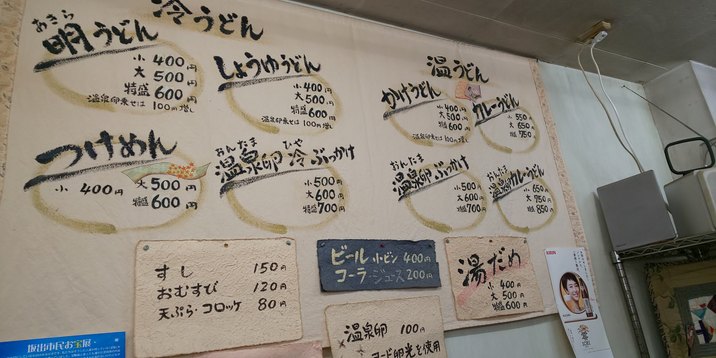 冷うどん
あきら
明うどん
小 400円
大 500円
特盛 600円
温泉卵乗せは 100円増し
しょうゆうどん
小 400円
大 500円
特盛 600円
温泉卵乗せは 100円増し
つけめん
小 400円
大 500円
特盛 600円
おんたま ひや
温泉卵 冷 ぶっかけ
小 500円
大 600円
特盛 700円
温うどん
かけうどん
小 400円
大 500円
特盛 600円
温泉卵乗せは 100円増し
カレーうどん
小 550
大 650
特盛 750
おんたま
温泉卵 ぶっかけ
小 500円
大 600円
特盛 700円
おんたま
温泉卵カレーうどん
小 650
大 750
特盛 850
すし 150円
おむすび 120円
天ぷら・コロッケ 80円
ビール 小ビン 400円
コーラ・ジュース 200円
湯だめ
小 400円
大 500円
特盛 600円
温泉卵 100円
ヨード卵光を使用
坂出市民お宝展
KIRIN